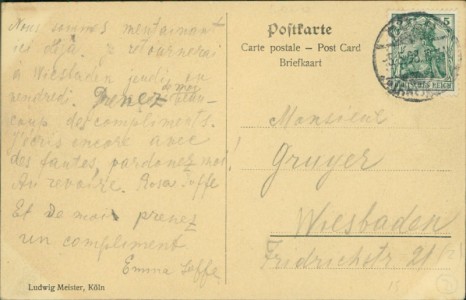 Nous sommes mentainant
ici Je retournerai
à Wiesbaden jeudi ou
vendredi. Prenez de moi beau-
coup des compliments.
J'ecris encore avec
des fautes, pardonez moi!
Au revoire. Rosa Seffe
Et De moi prenez
un compliment
Emma Seffe
Ludwig Meister, Köln
Postkarte
Carte postale — Post Card
Briefkaart
5
DEUTSCHES REICH
Monsieur
Gruyer
Wiesbaden
Fridrichstr 21